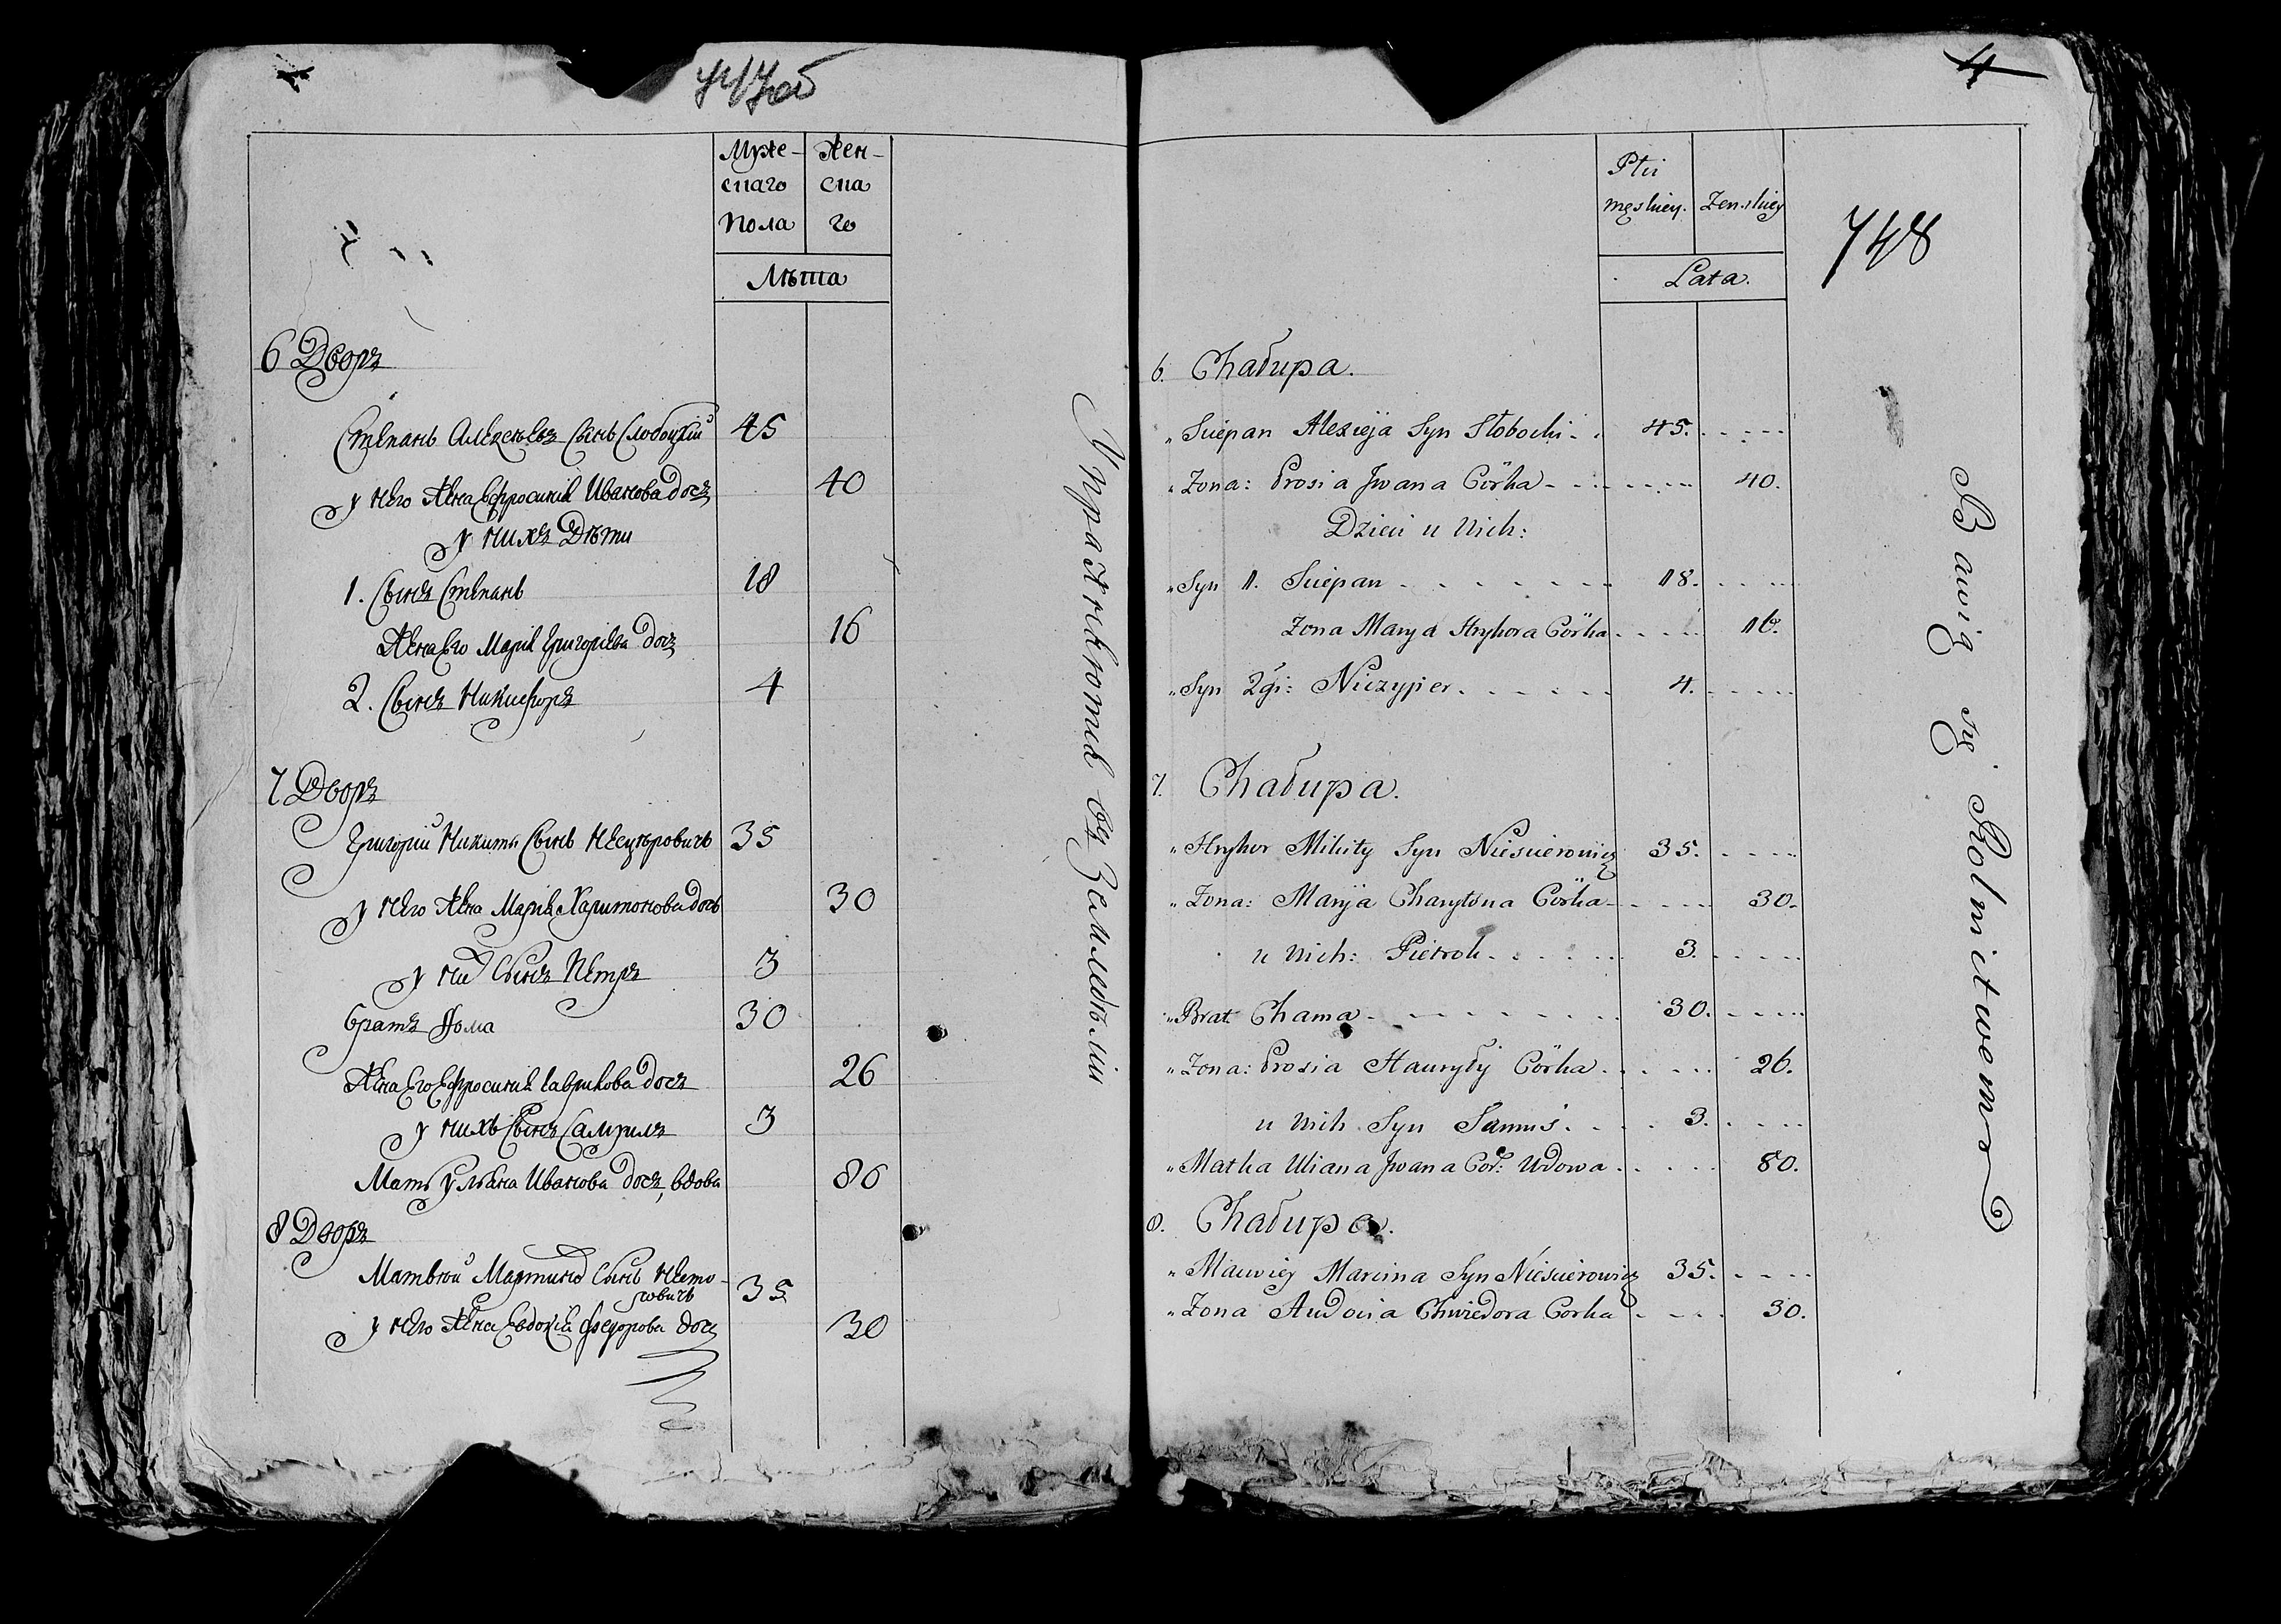 Муже- Жен-
скаго ска
пола го
Лѣта
6 Дворъ
Степанъ Алексѣевъ сынъ Слободскій 45
у него жена Ефросинія Иванова дочь 40
у нихъ дѣти
1. Сынъ Степанъ 18
жена его Марія Григоріева дочь 16
2. Сынъ Никифоръ 4
7 Дворъ
Григорій Никиты сынъ Несцѣровичъ 35
у него жена Марія Харитонова дочь 30
у них сынъ Петръ 3
братъ Фома 30
жена его Ефросинія Гаврилова дочь 26
у нихъ сынъ Самуилъ 3
Мать Ульяна Иванова дочь, вдова 86
8 Дворъ
Матвѣй Мартина сынъ
ровичъ 35
у него жена Евдокія Федорова дочь 30
Упражняются въ Земледѣліи
4
748
Płci
męskiey. Żenskiey
Lata.
6. Chałupa.
" Sciepan Alexieja Syn Słobocki 45.
" Żona: Prosia Jwana Córka 40.
Dzieci u Nich:
" Syn 1. Sciepan 18.
Żona Marya Hryhora Córka 16.
" Syn 2gi: Niczypier 4.
7. Chałupa.
" Hryhor Mikity Syn Niescierowicz 35.
" Żona: Maryja Charytona Córka 30.
u Nich: Pietrok 3.
" Brat Chama 30.
" Żona: Prosia Hauryły Córka 26.
u Nich Syn Samuś 3.
" Matka Uliana Jwana Cór: Wdowa 80.
8. Chałupa.
" Mauwiey Marcina Syn Niescierowicz 35.
" Żona Audocia Chwiedora Corka 30.
Bawią się Rolnictwem